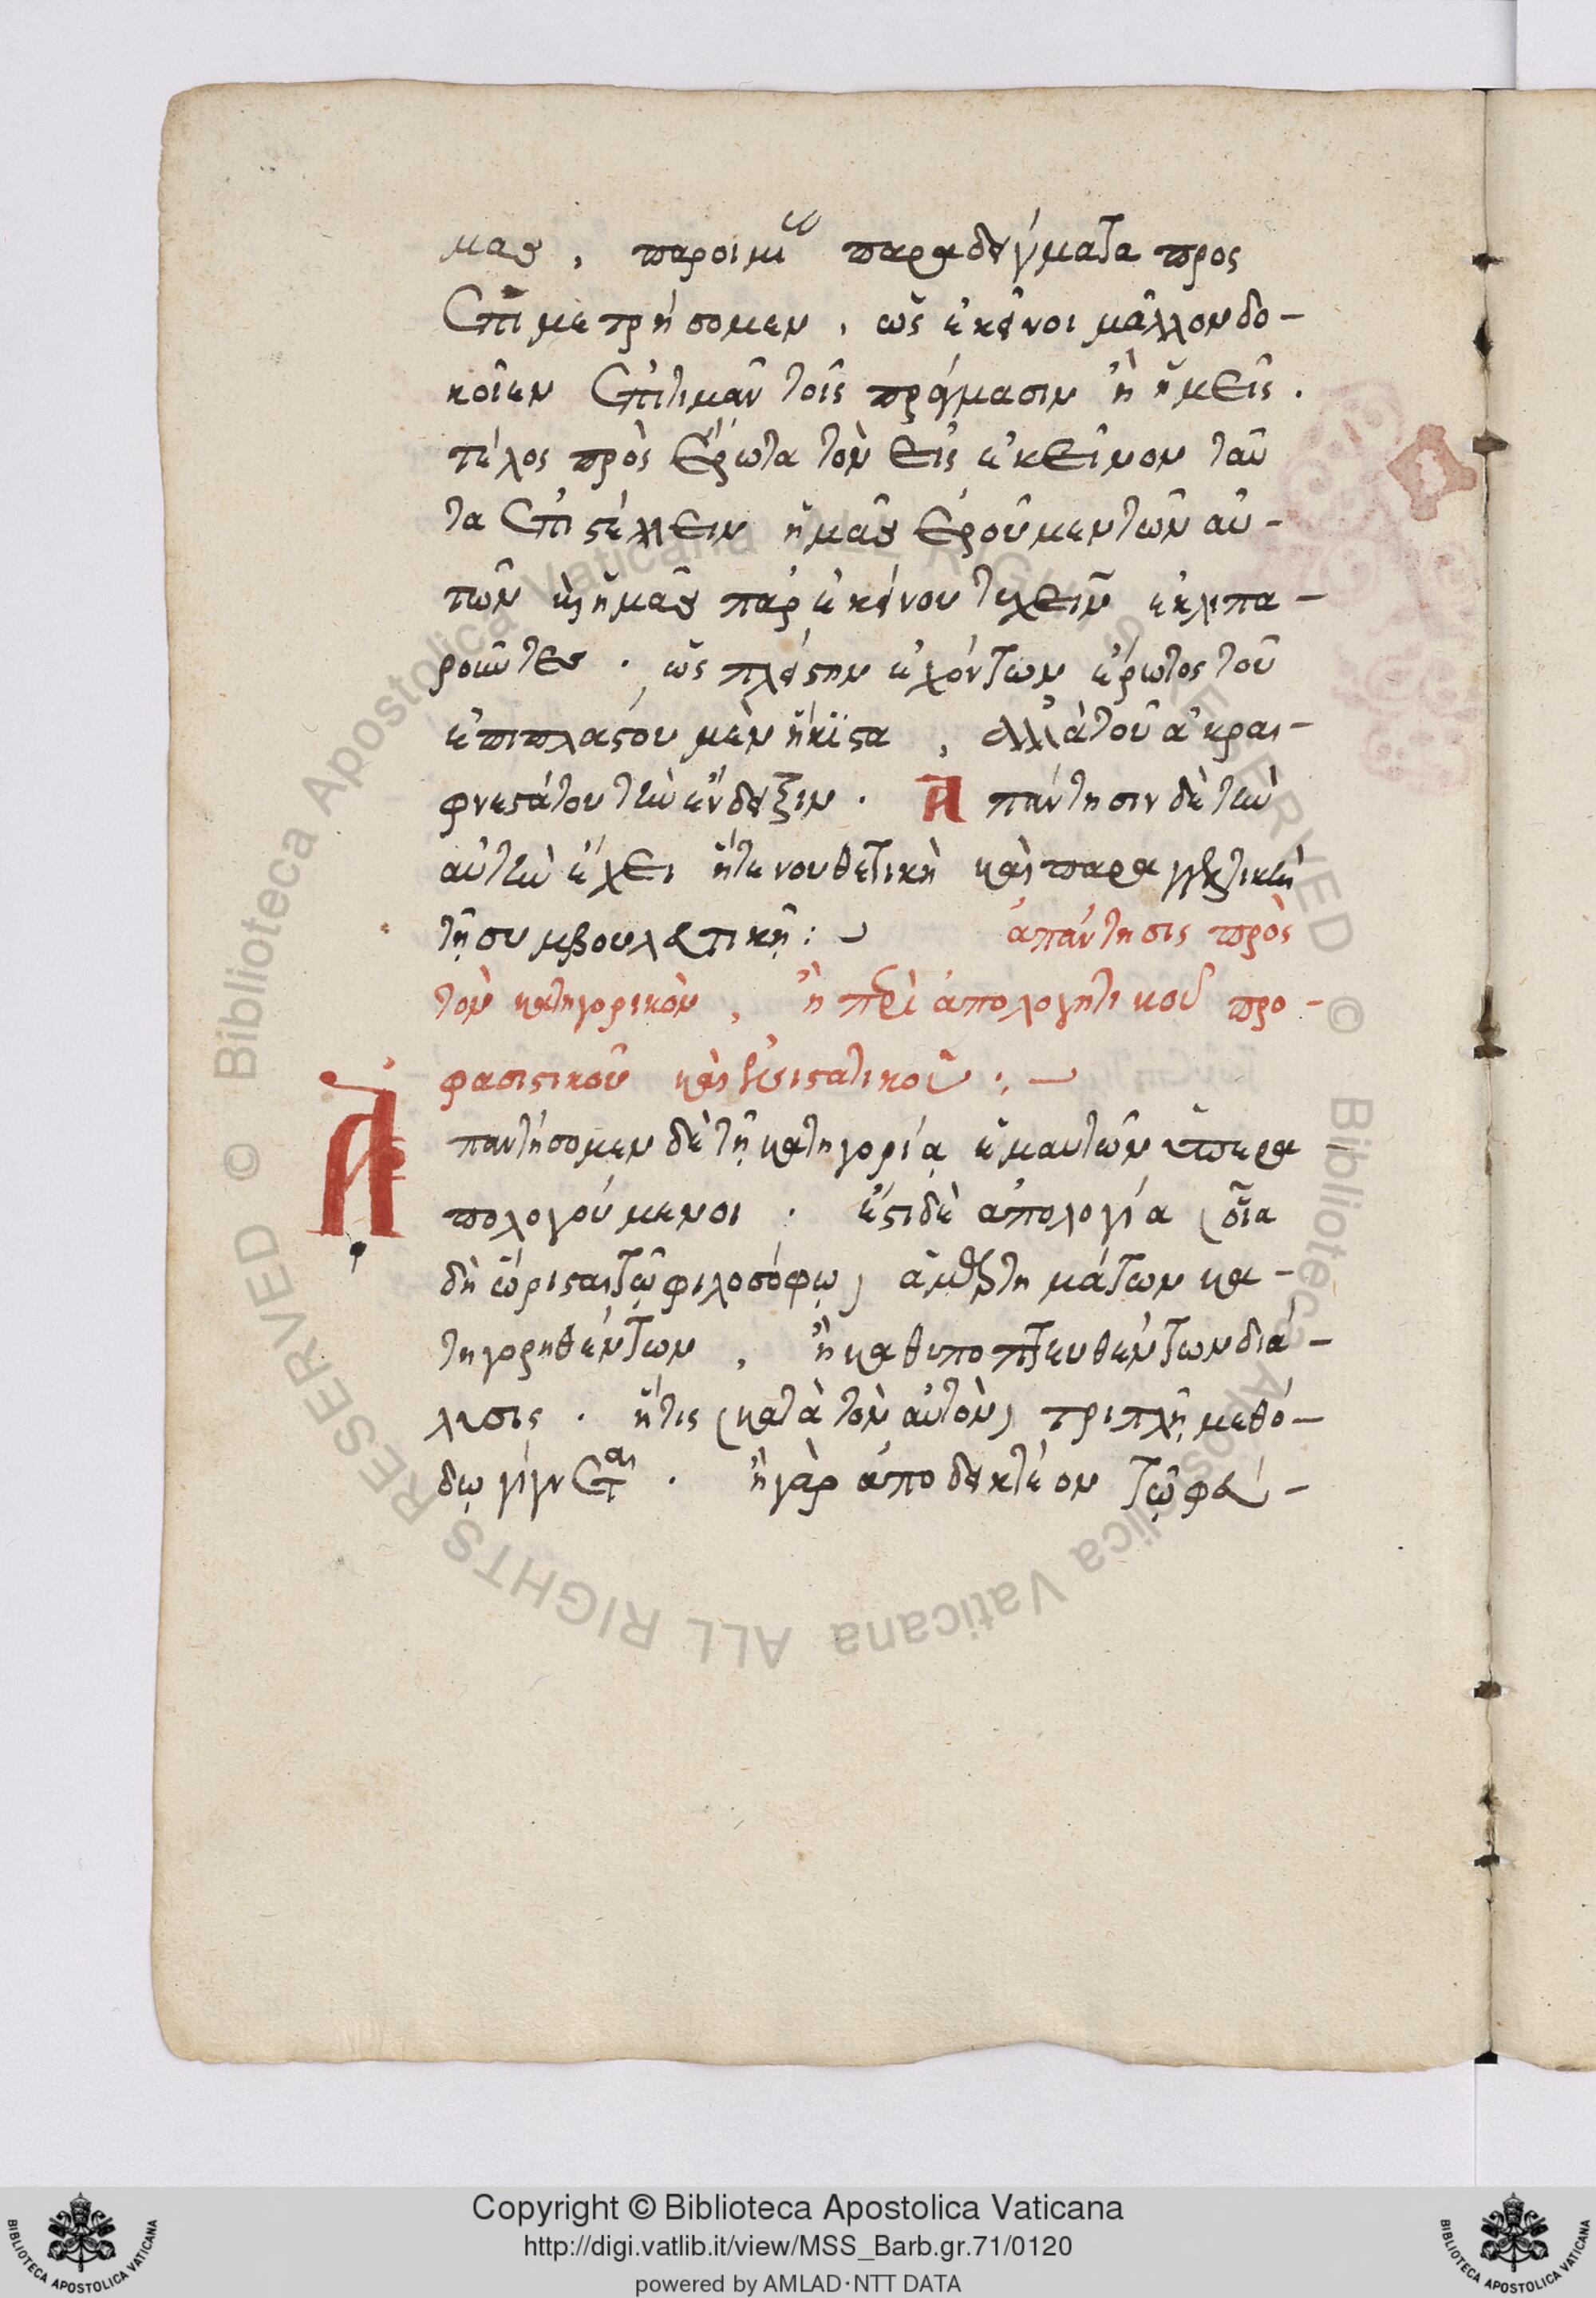 μας, παροιμιῶν παραδείγματα προς
ἐπιμετρήσομεν, ὡς ἐκεῖνοι μᾶλλον δο-
κοῖεν ἐπιτιμᾶν τοῖς πράγμασιν ἢ ἡμεῖς.
τέλος πρὸς ἔρωτα τὸν εἰς ἐκεῖνον ταῦ
τα ἐπιστέλλειν ἡμᾶς ἐροῦμεν τῶν αὐ-
τῶν καὶ ἡμᾶς παρ' ἐκείνου τυχεῖν ἐκλιπα-
ροῦντες. ὡς πλείστην ἐχόντων ἔρωτος τοῦ
ἐπιπλάστου μὲν ἥκιστα, ἀλλὰ τοῦ ἀκραι-
φνεστάτου τὴν ἔνδειξιν. Ἀπάντησιν δὲ τὴν
αὐτὴν ἔχει ἥτε νουθετικὴ καὶ παραγγελτικὴ
τῇ συμβουλευτικῇ:
ἀπάντησις πρὸς
τὸν κατηγορικὸν, ἢ περὶ ἀπολογητικοῦ προ-
φασιστικοῦ καὶ
Ἀπαντήσομεν δὲ τῇ κατηγορίᾳ ἐμαυτῶν ὑπερα
πολογούμενοι. ἔστι δὲ ἀπολογία (οἷα
δὴ ὥρισται τῷ φιλοσόφῳ) ἁμαρτημάτων κα-
τηγορηθέντων, ἢ καθυποπτευθέντων διά-
λυσις. ἥτις (κατὰ τὸν αὐτὸν) τριπλῇ μεθό-
δῳ γίγνεται. ἢ γὰρ ἀποδεικτέον τῷ φεύ-
Copyright © Biblioteca Apostolica Vaticana
http://digi.vatlib.it/view/MSS_Barb.gr.71/0120
powered by AMLAD·NTT DATA
BIBLIOTECA APOSTOLICA VATICANA
BIBLIOTECA APOSTOLICA VATICANA
© Biblioteca Apostolica Vaticana ALL RIGHTS RESERVED © Biblioteca Apostolica Vaticana ALL RIGHTS RESERVED